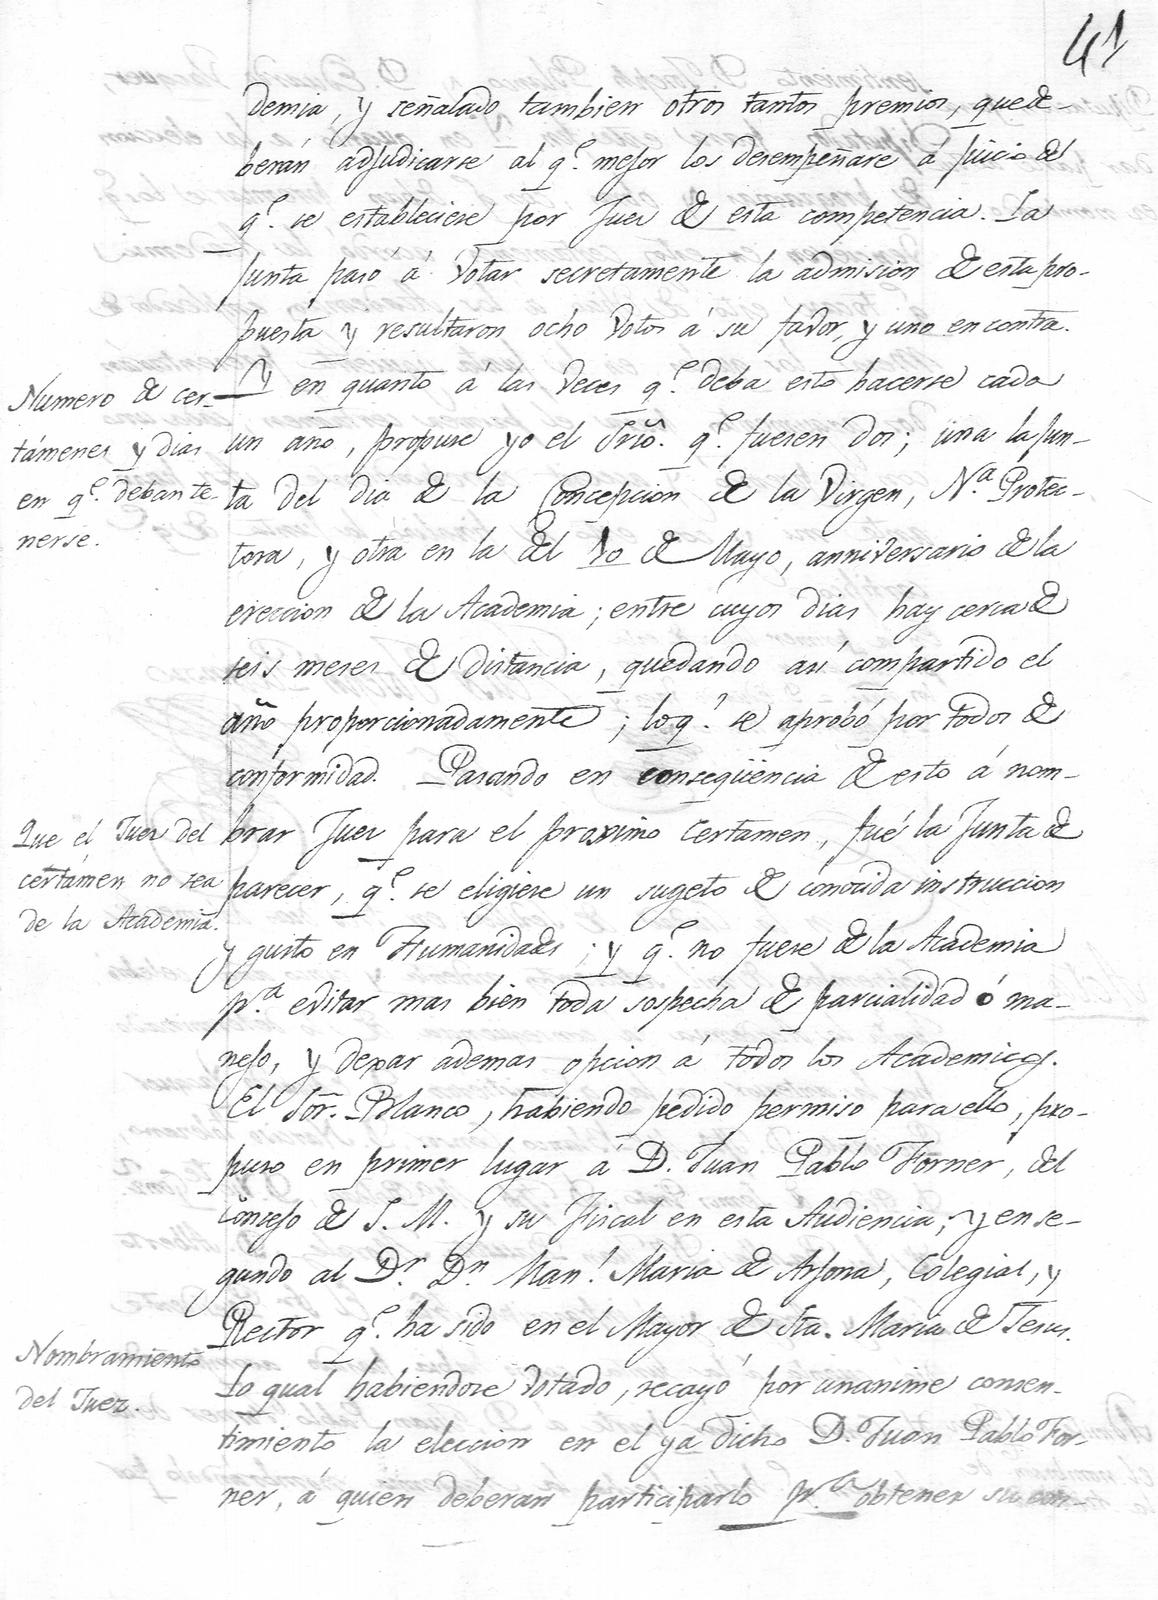 41
demia, y señalado tambien otros tantos premios, que de-
berán adjudicarse al q.e mejor los desempeñare á juicio del
q.e se estableciese por Juez de esta competencia. La
Junta pasó á votar secretamente la admision de esta pro-
puesta y resultaron ocho votos á su favor, y uno en contra.
Numero de cer-
támenes y dias
en q.e deban te-
nerse.
Y en quanto á las veces q.e deba esto hacerse cada
un año, propuse yo el Srio. q.e fuesen dos; una la Jun-
ta del dia de la Concepcion de la Virgen, N.a Protec-
tora, y otra en la del 10 de Mayo, anniversario de la
ereccion de la Academia; entre cuyos dias hay cerca de
seis meses de distancia, quedando asi compartido el
año proporcionadamente; lo q.e se aprobó por todos de
conformidad. Pasando en conseqüencia de esto á nom-
Que el Juez del
certámen no sea
de la Academia.
brar Juez para el proximo certamen, fué la Junta de
parecer, q.e se eligiese un sugeto de conocida instruccion
y gusto en Humanidades; y q.e no fuese de la Academia
p.a evitar mas bien toda sospecha de parcialidad ó ma-
nejo, y dexar ademas opcion á todos los Academicos.
El Sor. Blanco, habiendo pedido permiso para ello, pro-
puso en primer lugar á D. Juan Pablo Forner, del
Consejo de S. M. y su Fiscal en esta Audiencia; y en se-
gundo al D.r D.n Man.l Maria de Arjona, Colegial, y
Rector q.e ha sido en el Mayor de Sta. Maria de Jesus.
Nombramiento
del Juez.
Lo qual habiendose votado, recayó por unanime consen-
timiento la eleccion en el ya dicho D. Juan Pablo For-
ner, á quien deberan participarlo p.a obtener su con-